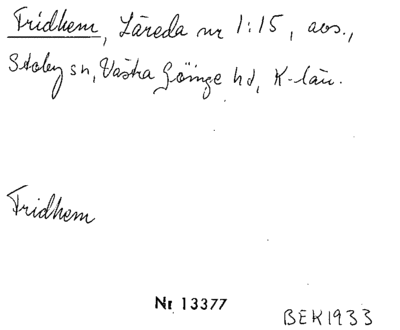 Fridhem, Läreda nr 1:15, avs.,
Stoby sn, Västra Göinge hd, K-län.
Fridhem
Nr 13377
BEK1933